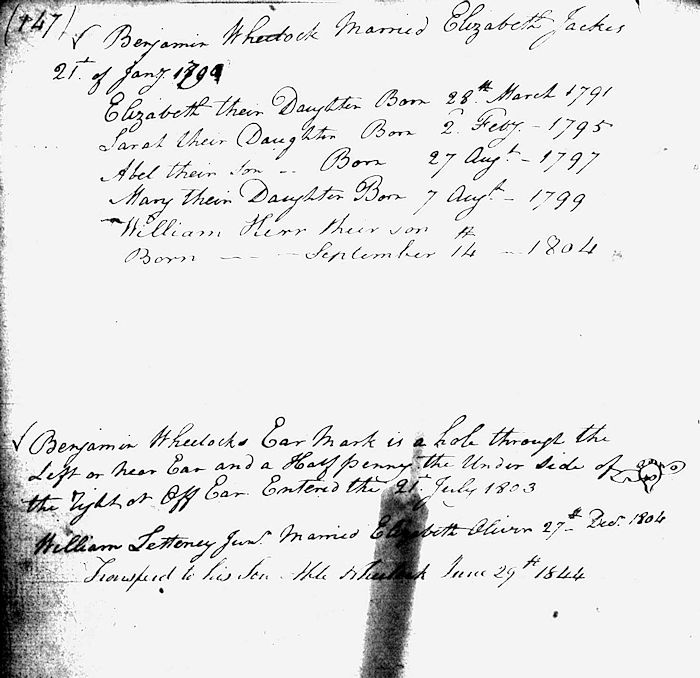 (147)
✓ Benjamin Wheelock Married Elizabeth Jackes
21st. of Jany. 1790
Elizabeth their Daughter Born 28th March 1791
Sarah their Daughter Born 2d. Feby. - 1795
Abel their son - - Born 27 Augst - 1797
Mary their Daughter Born 7 Augst - 1799
William Herr their son
Born - - - September 14th - 1804
✓ Benjamin Wheelocks Ear Mark is a hole through the
Left or near Ear and a Half penny the Under side of
the Right or Off Ear. Entered the 21st. July 1803
William Letteney Junr. Married Elizabeth Oliver 27th Decr. 1804
to his Son Able Wheelock June 29th 1844